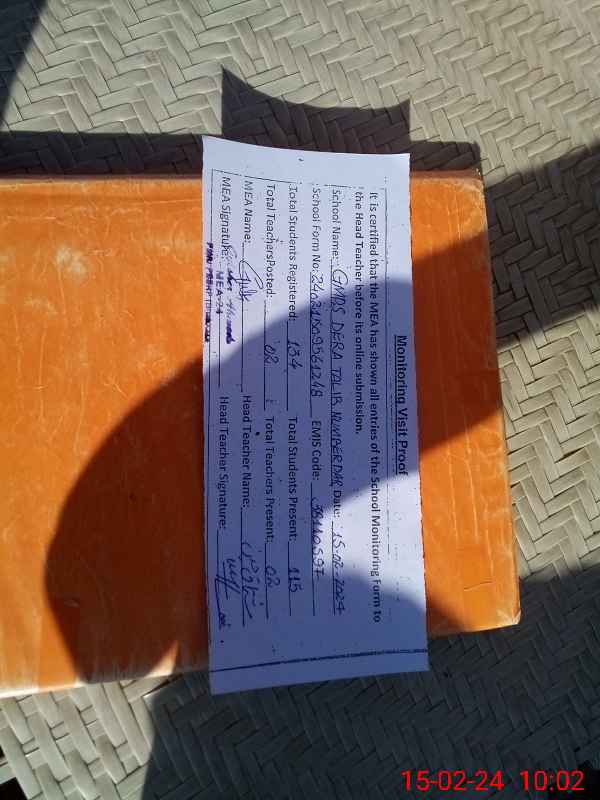 Monitoring Visit Proof
It is certified that the MEA has shown all entries of the School Monitoring Form to
the Head Teacher before its online submission.
School Name: GMPS DERA TALIB NUMBERDAR Date: 15-02-2024
School Form No: EMIS Code: 38110597
Total Students Registered: 134 Total Students Present: 115
Total TeachersPosted: 02 Total Teachers Present: 02
MEA Name: Head Teacher Name:
MEA Signature: Head Teacher Signature:
MEA-24
15-02-24 10:02